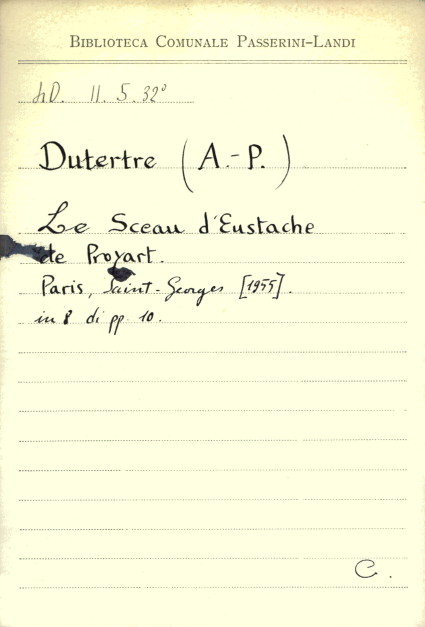 BIBLIOTECA COMUNALE PASSERINI-LANDI
11. 5. 32°
Dutertre (A.-P.)
Le Sceau d'Eustache
de Proyart.
Paris, Saint-Georges [1955].
in 8 di pp. 10.
C.